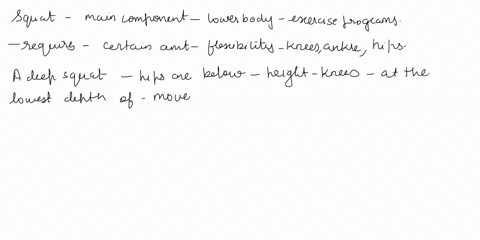 Squat - main component - lowerbody - exercise programs.
- requirs - certain amt - flexibility - knees, ankle, hips.
A deep squat - hips are below - height - knees - at the
lowest depth of - move